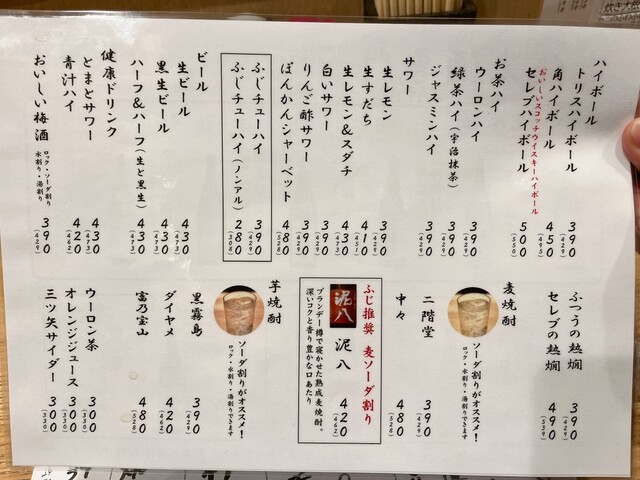 ハイボール
トリスハイボール 390 (429)
角ハイボール 450 (495)
おいしいスコッチウイスキーハイボール
セレブハイボール 500 (550)
お茶ハイ
ウーロンハイ 390 (429)
緑茶ハイ(宇治抹茶) 390 (429)
ジャスミンハイ 390 (429)
サワー
生レモン
生すだち
生レモン&スダチ
白いサワー 390 (429)
りんご酢サワー 390 (429)
ぽんかんシャーベット 480 (528)
ふじチューハイ 390 (429)
ふじチューハイ(ノンアル) 280 (308)
ビール
生ビール 430 (473)
黒生ビール 430 (473)
ハーフ&ハーフ(生と黒生) 430 (473)
健康ドリンク
とまとサワー 430 (473)
青汁ハイ 420 (462)
おいしい梅酒 ロック・ソーダ割り 水割り・湯割り 390 (429)
ふつうの熱燗 390 (429)
セレブの熱燗 490 (539)
麦焼酎
ソーダ割りがオススメ!
ロック・水割り・湯割りできます
二階堂 390 (429)
中々 480 (528)
ふじ推奨 麦ソーダ割り
泥八
泥八 420 (462)
ブランデー樽で寝かせた熟成麦焼酎。
深いコクと香り豊かな口あたり
芋焼酎
ソーダ割りがオススメ!
ロック・水割り・湯割りできます
黒霧島 390 (429)
ダイヤメ 420 (462)
富乃宝山 480 (528)
ウーロン茶 300 (330)
オレンジジュース 300 (330)
三ツ矢サイダー 300 (330)